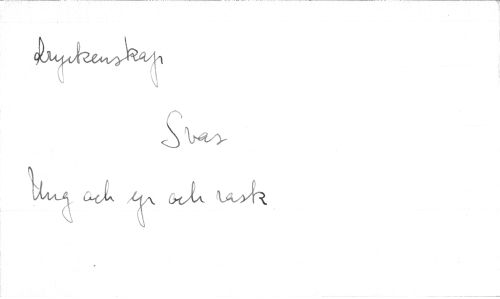 Dryckenskap
Svar
Ung och yr och rask